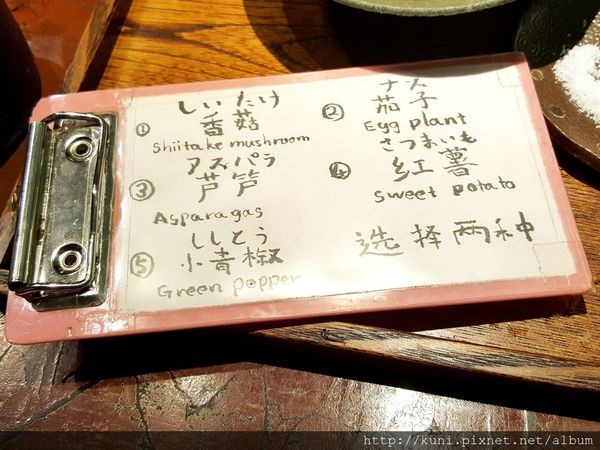 ① しいたけ
香菇
Shiitake mushroom
② ナス
茄子
Egg plant
③ アスパラ
芦笋
Asparagas
④ さつまいも
红薯
Sweet potato
⑤ ししとう
小青椒
Green pepper
选择两种
http://kuni.pixnet.net/album